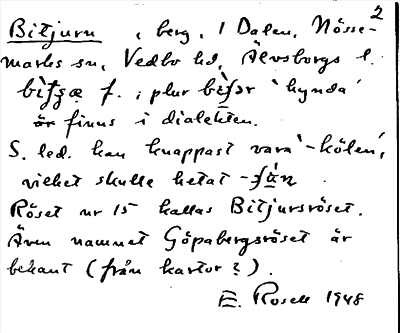 2
Bitjurn, berg, 1 Dalen, Nösse-
marks sn, Vedbo hd, Älvsborgs l.
f. ; plur 'hynda'
är finns i dialekten.
S. led. kan knappast vara '-kölen',
vilket skulle hetat
Röset nr 15 kallas Bitjursröset.
Även namnet Göpabergsröset är
bekant (från kartor?).
E. Rosell 1948